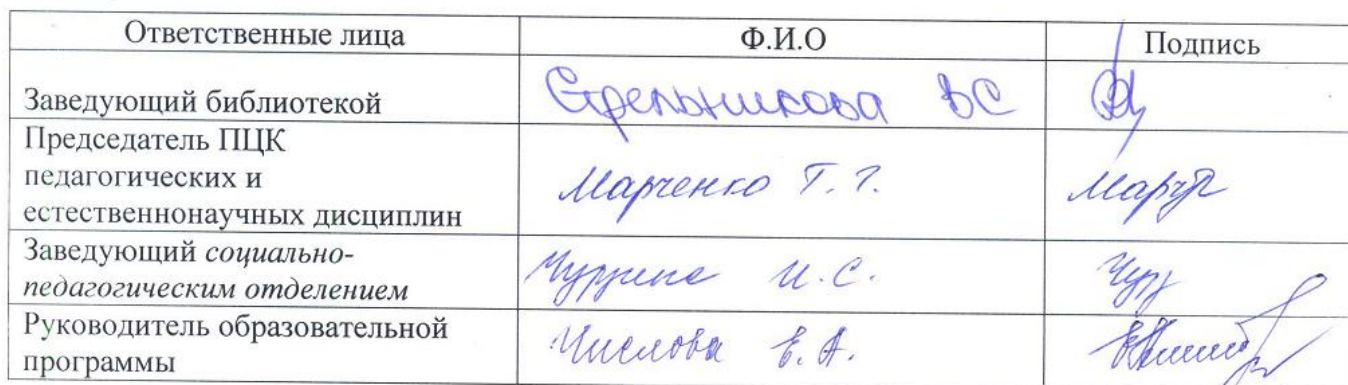 Ответственные лица Ф.И.О Подпись
Заведующий библиотекой Стрельникова ВС
Председатель ПЦК
педагогических и
естественнонаучных дисциплин Марченко Т. Г.
Заведующий социально-
педагогическим отделением И.С.
Руководитель образовательной
программы Числова Е.А.